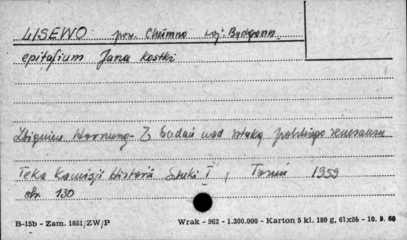 LISEWO pow. Chełmno woj. Bydgoszcz
epitafium Jana Kostki
Zbigniew Hornung - Z badań nad sztuką polskiego renesansu
Teka Komisji Historii Sztuki I, Toruń 1959
str. 130
B-15b - Zam. 1681/ZW/P Wrak - 962 - 1.200.000 - Karton 5 kl. 180 g, 61x86 - 10. 9. 60